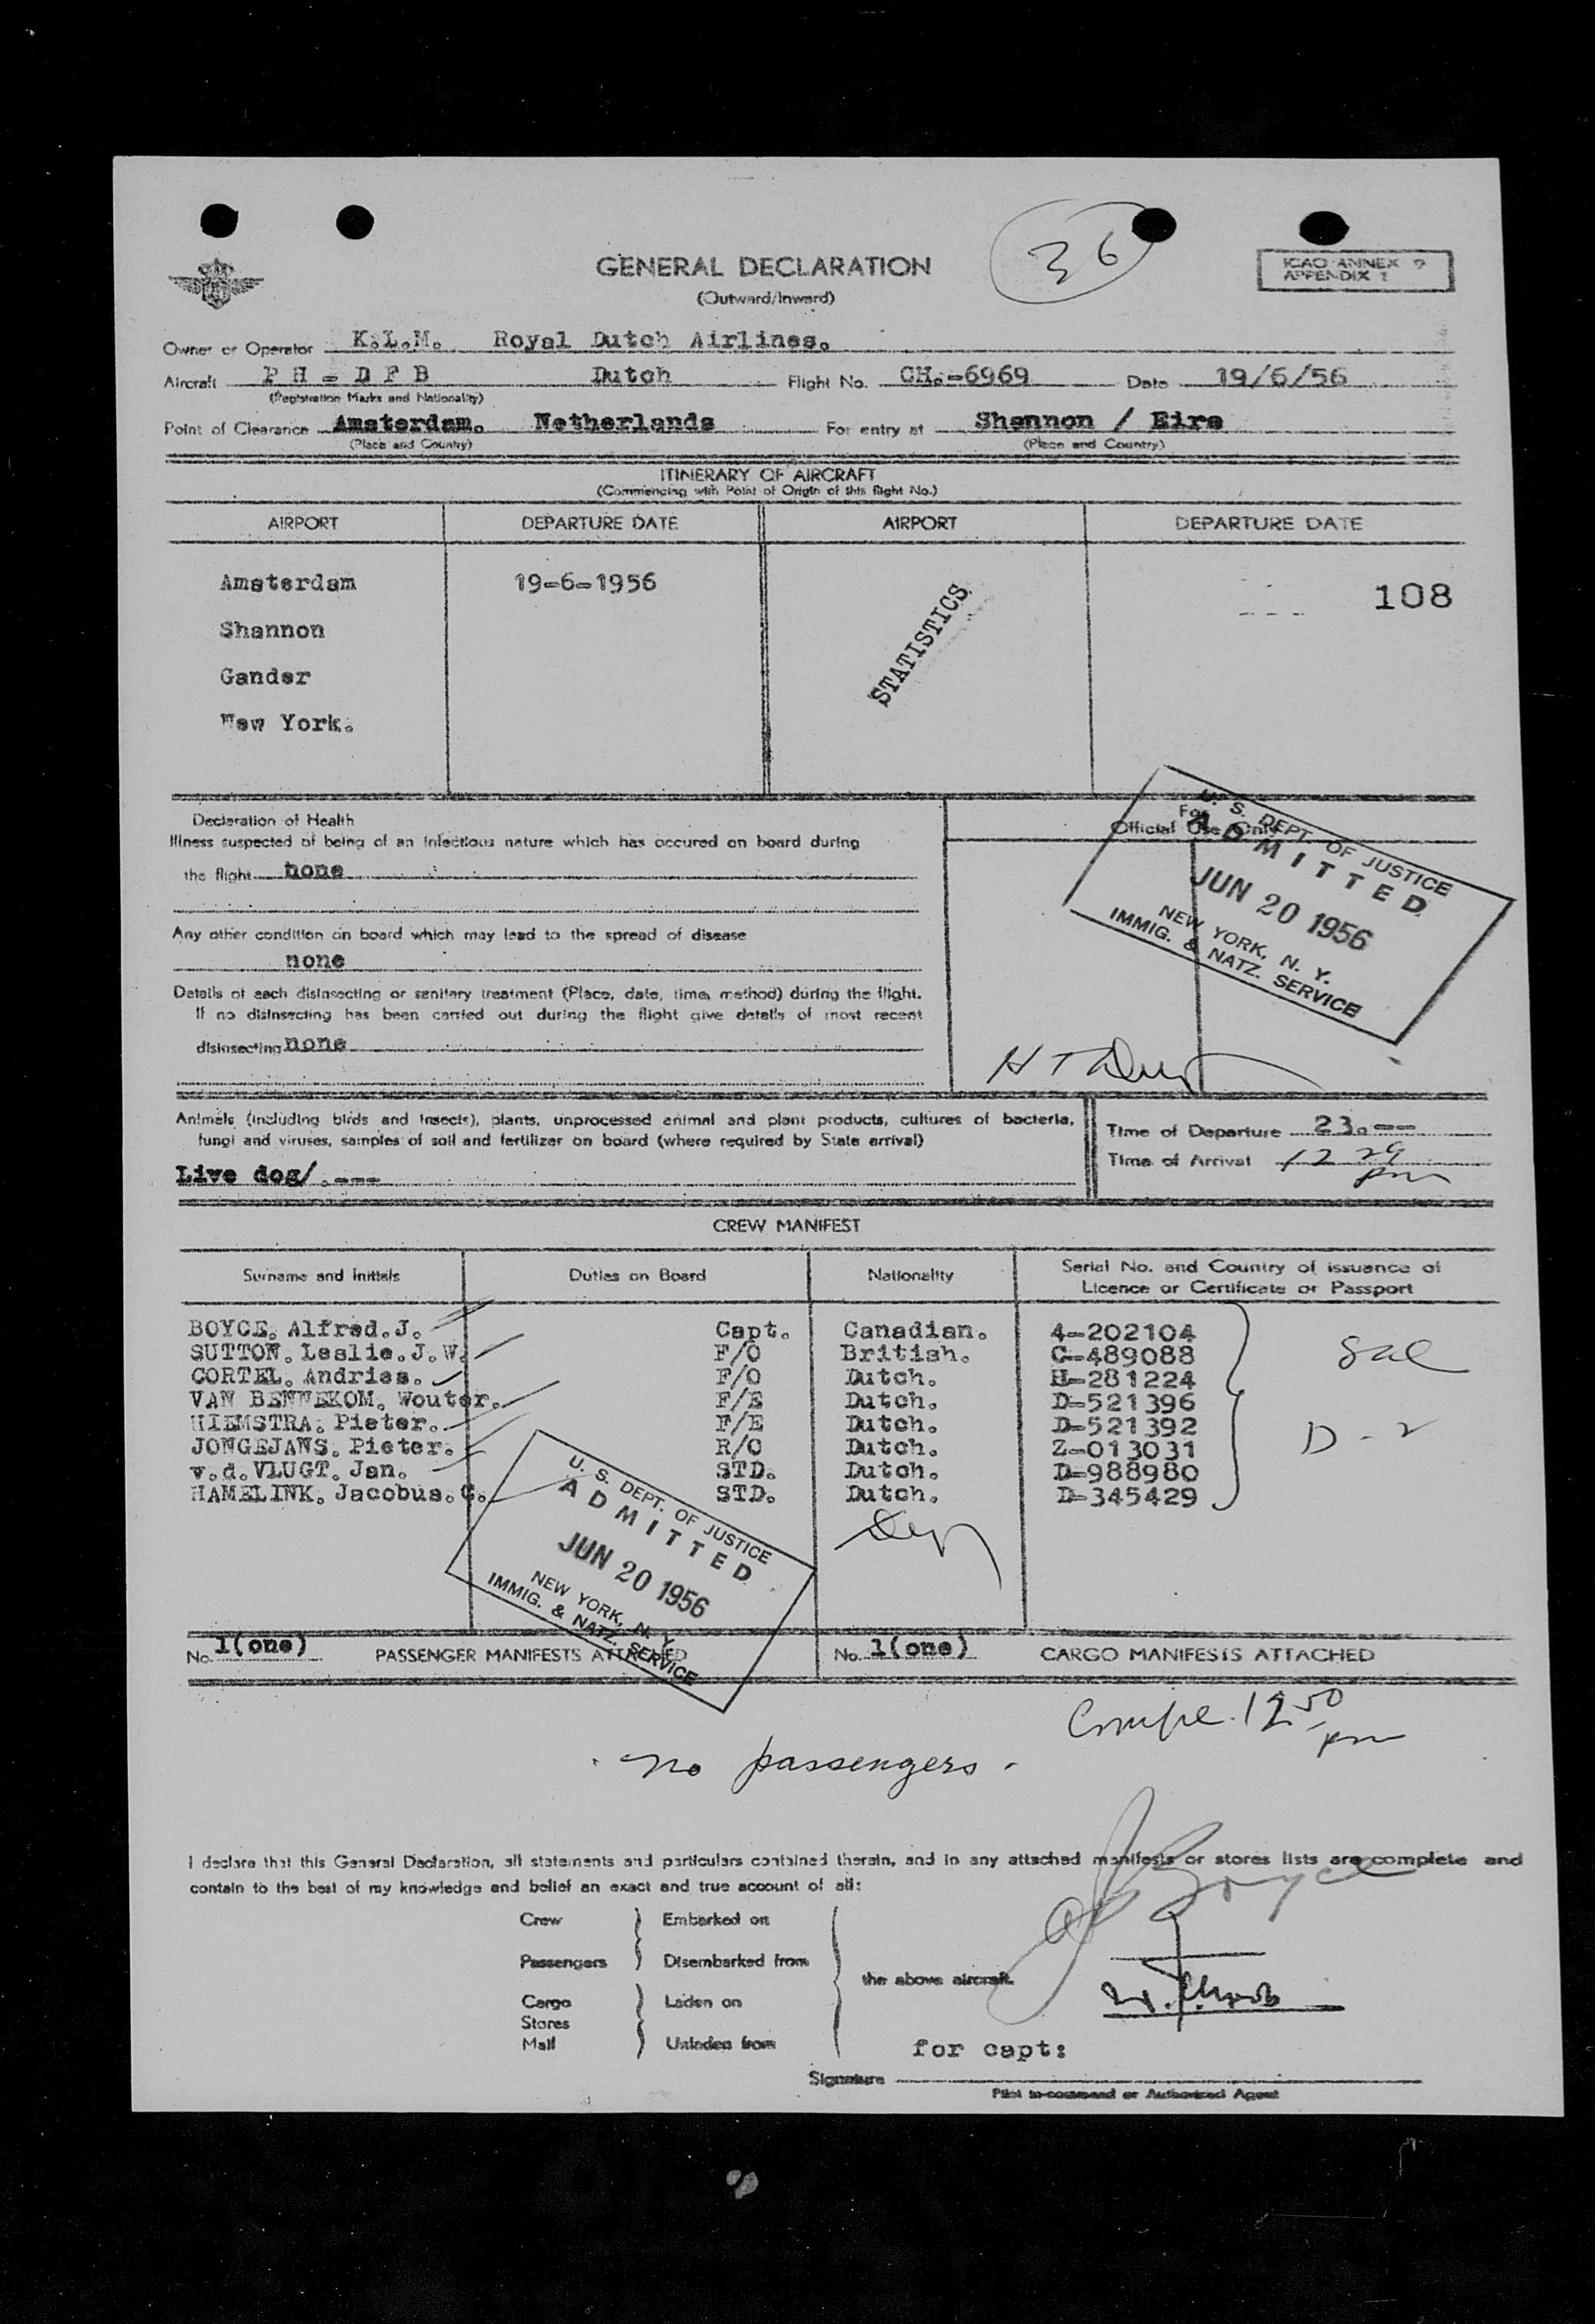 36
GENERAL DECLARATION
(Outward/Inward)
ICAO ANNEX 9
APPENDIX 1
Owner or Operator K.L.M. Royal Dutch Airlines.
Aircraft P H - D F B Dutch Flight No. CH.-6969 Date 19/6/56
(Registration Marks and Nationality)
Point of Clearance Amsterdam. Netherlands For entry at Shannon / Eire
(Place and Country) (Place and Country)
ITINERARY OF AIRCRAFT
(Commencing with Point of Origin of this flight No.)
AIRPORT DEPARTURE DATE AIRPORT DEPARTURE DATE
Amsterdam 19-6-1956 108
Shannon
STATISTICS
Gander
New York.
Declaration of Health
Illness suspected of being of an infectious nature which has occured on board during
the flight none
Any other condition on board which may lead to the spread of disease
none
Details of each disinsecting or sanitary treatment (Place, date, time, method) during the flight.
If no disinsecting has been carried out during the flight give details of most recent
disinsecting none
For
Official Use Only
U. S. DEPT. OF JUSTICE
ADMITTED
JUN 20 1956
NEW YORK, N. Y.
IMMIG. & NATZ. SERVICE
Animals (including birds and insects), plants, unprocessed animal and plant products, cultures of bacteria,
fungi and viruses, samples of soil and fertilizer on board (where required by State arrival)
Live dog/.---
Time of Departure 23.--
Time of Arrival 12 29
pm
CREW MANIFEST
Surname and initials Duties on Board Nationality Serial No. and Country of issuance of
Licence or Certificate or Passport
BOYCE. Alfred.J. Capt. Canadian. 4-202104
SUTTON. Leslie.J.W. F/O British. C-489088
CORTEL. Andries. F/O Dutch. H-281224
VAN BENNEKOM. Wouter. F/E Dutch. D-521396
HIEMSTRA. Pieter. F/E Dutch. D-521392
JONGEJANS. Pieter. R/O Dutch. Z-013031
v.d.VLUGT. Jan. STD. Dutch. D-988980
HAMELINK. Jacobus.G. STD. Dutch. D-345429
D-2
U. S. DEPT. OF JUSTICE
ADMITTED
JUN 20 1956
NEW YORK, N. Y.
IMMIG. & NATZ. SERVICE
No. 1(one) PASSENGER MANIFESTS ATTACHED No. 1(one) CARGO MANIFESTS ATTACHED
12 50
pm
no passengers
I declare that this General Declaration, all statements and particulars contained therein, and in any attached manifests or stores lists are complete and
contain to the best of my knowledge and belief an exact and true account of all:
Crew Embarked on
Passengers Disembarked from
the above aircraft.
Cargo Laden on
Stores
Mail Unladen from
Boyce
for capt:
Signature
Pilot in-command or Authorized Agent